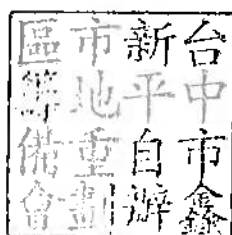 台中市鑫
新平自辦
市地重劃
區籌備會